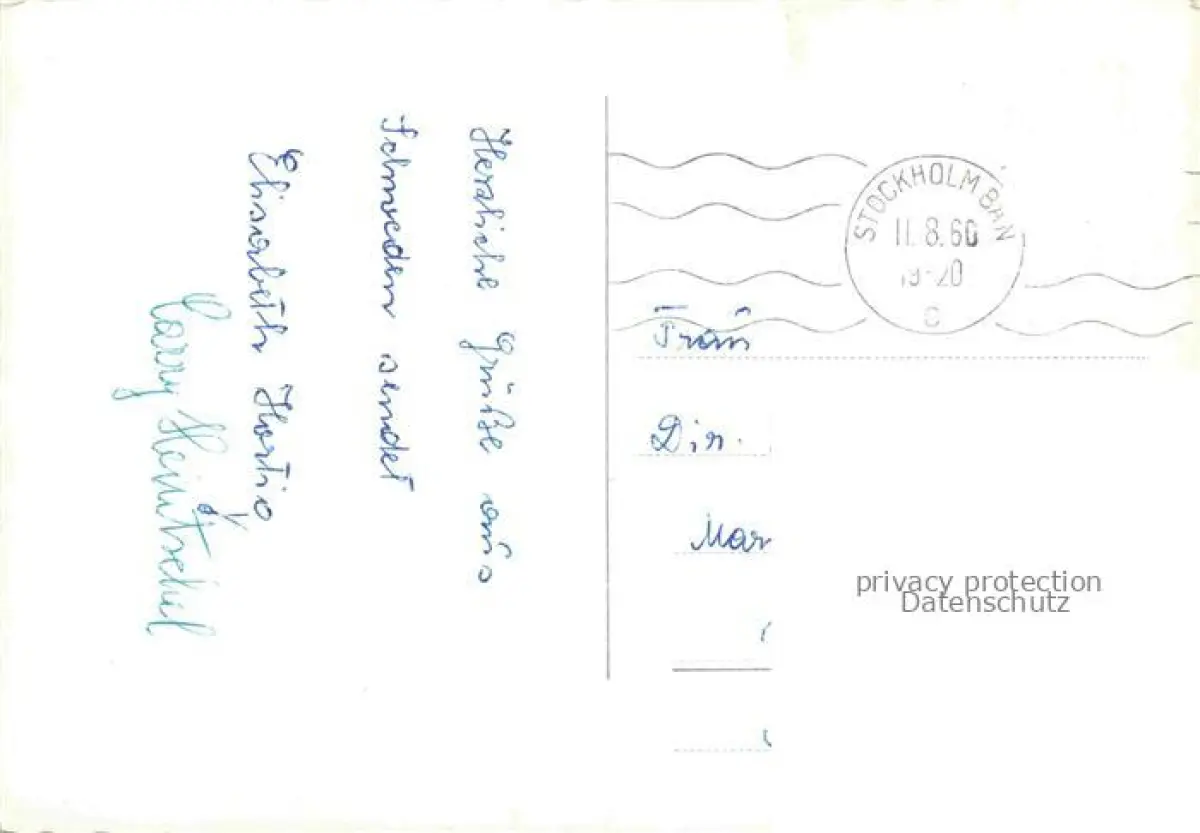 Herzliche Grüße aus
Schweden sendet
Elisabeth Hortig
Carry Heintschel
STOCKHOLM BAN
11.8.60
19-20
C
Frau
Dir.
Mar
privacy protection
Datenschutz